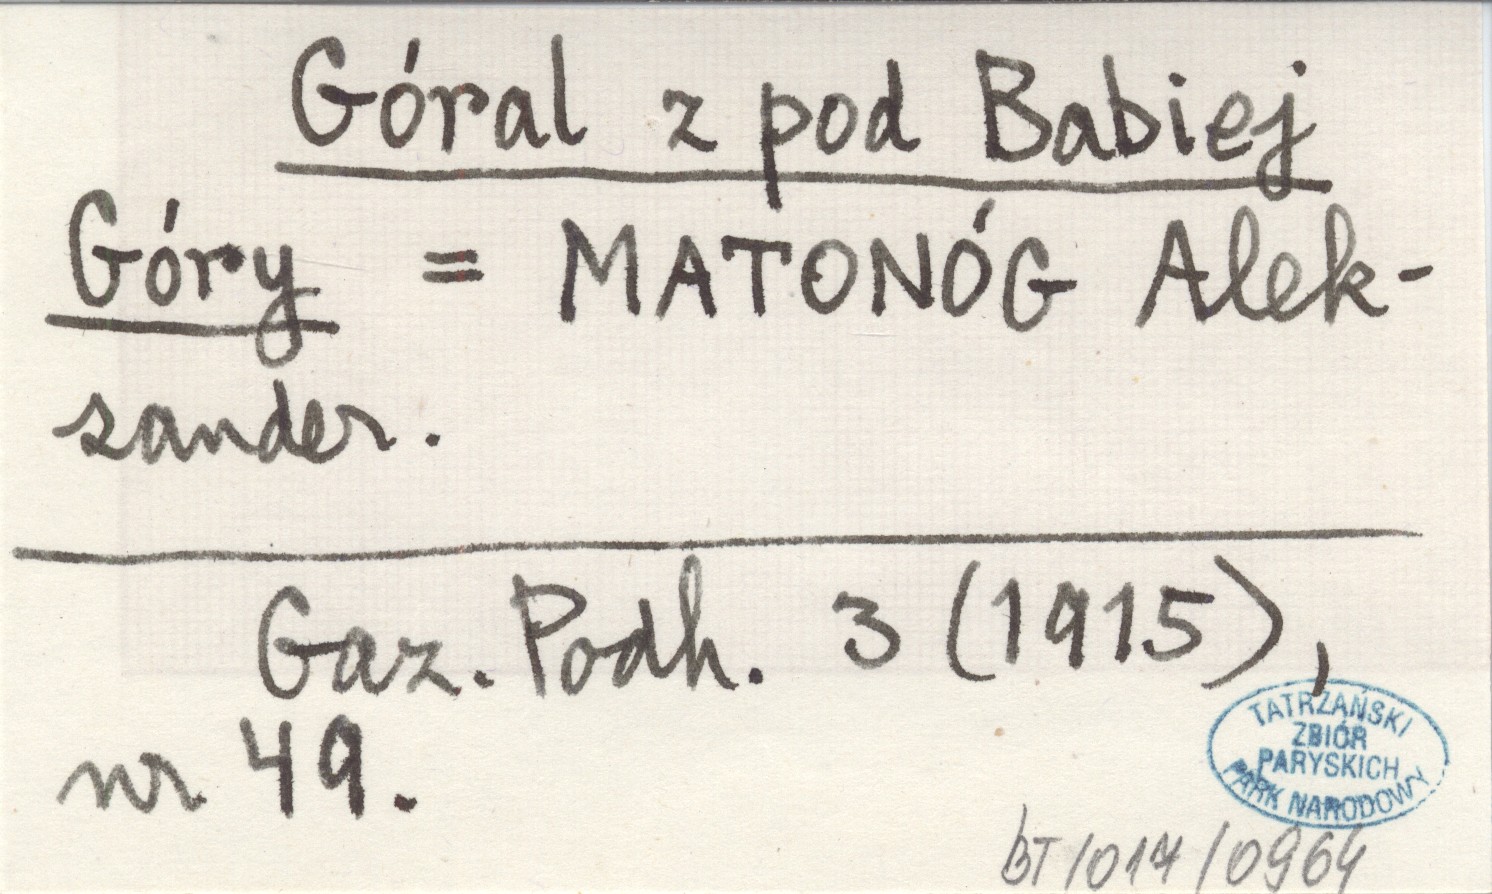 Góral z pod Babiej
Góry = MATONÓG Alek-
sander.
Gaz. Podh. 3 (1915),
nr 49.
TATRZAŃSKI
ZBIÓR
PARYSKICH
PARK NARODOWY
BT/017/0964